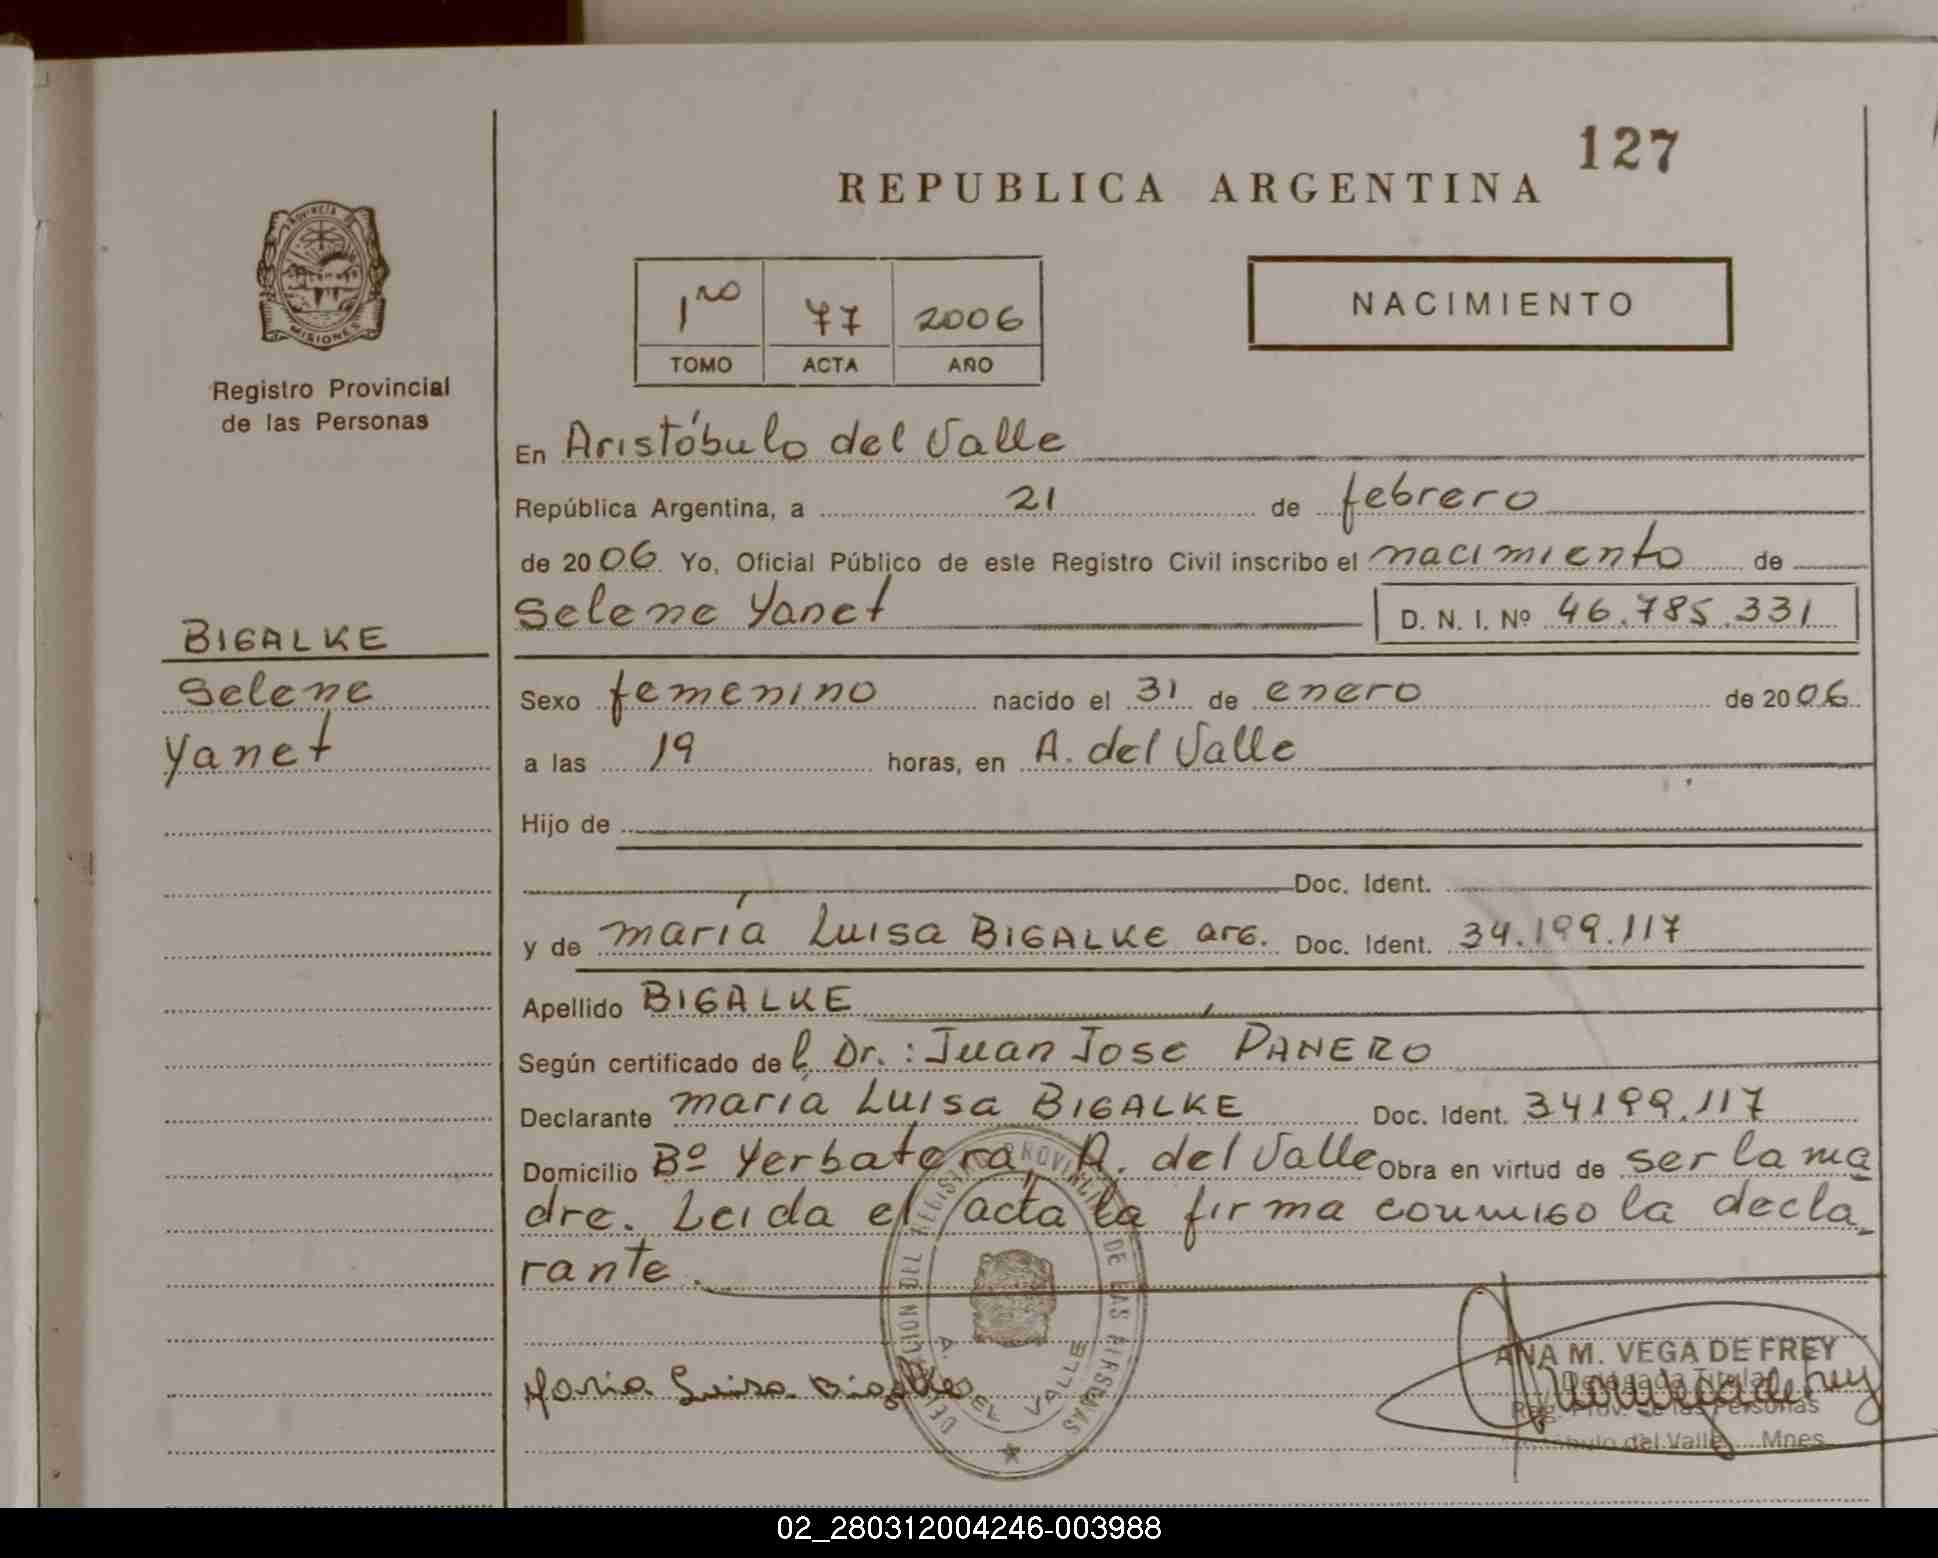 127
REPUBLICA ARGENTINA
PROVINCIA DE
MISIONES
Registro Provincial
de las Personas
1ro 77 2006
TOMO ACTA AÑO
NACIMIENTO
En Aristóbulo del Valle
República Argentina, a 21 de febrero
de 2006. Yo, Oficial Público de este Registro Civil inscribo el nacimiento de
Selene Yanet D. N. I. Nº 46.785.331
BIGALKE
Selene
Yanet
Sexo femenino nacido el 31 de enero de 2006.
a las 19 horas, en A. del Valle
Hijo de
Doc. Ident.
y de maría Luisa BIGALKE arg. Doc. Ident. 34.199.117
Apellido BIGALKE
Según certificado del Dr.: Juan José PANERO
Declarante maría Luisa BIGALKE Doc. Ident. 34199.117
Domicilio Bº Yerbatera, A. del Valle Obra en virtud de ser la ma
dre. Leida el acta la firma conmigo la decla_
rante.
DELEGACION DEL REGISTRO PROVINCIAL DE LAS PERSONAS
A. DEL VALLE
Maria Luisa Bigalke
ANA M. VEGA DE FREY
Delegada Titular
Reg. Prov. de las Personas
Aristóbulo del Valle Mnes.
02_280312004246-003988